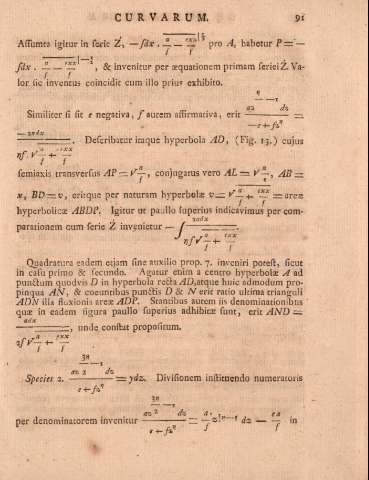 CURVARUM. 91
Assumta igitur in serie Ż, — fdx . a/f — exx/f pro A, habetur P = —
fdx . a/f — exx/f, & invenitur per æquationem primam seriei Ż. Va-
lor sic inventus coincidit cum illo prius exhibito.
Similiter si sit e negativa, f autem affirmativa, erit
= Describatur itaque hyperbola AD, (Fig. 13.) cujus
semiaxis transversus AP = √ conjugatus vero AL = √ AB =
x, BD = v, eritque per naturam hyperbolæ v = √ = areæ
hyperbolicæ ABDP. Igitur ut paullo superius indicavimus per com-
parationem cum serie Ż invenietur — ∫
Quadratura eadem etjam sine auxilio prop. 7. inveniri potest, sicut
in casu primo & secundo. Agatur enim a centro hyperbolæ A ad
punctum quodvis D in hyperbola recta AD, atque huic admodum pro-
pinqua AN, & coeuntibus punctis D & N erit ratio ultima trianguli
ADN illa fluxionis areæ ADP. Stantibus autem iis denominationibus
quæ in eadem figura paullo superius adhibitæ sunt, erit AND =
unde constat propositum.
Species 2. = ydz. Divisionem instituendo numeratoris
per denominatorem invenitur in